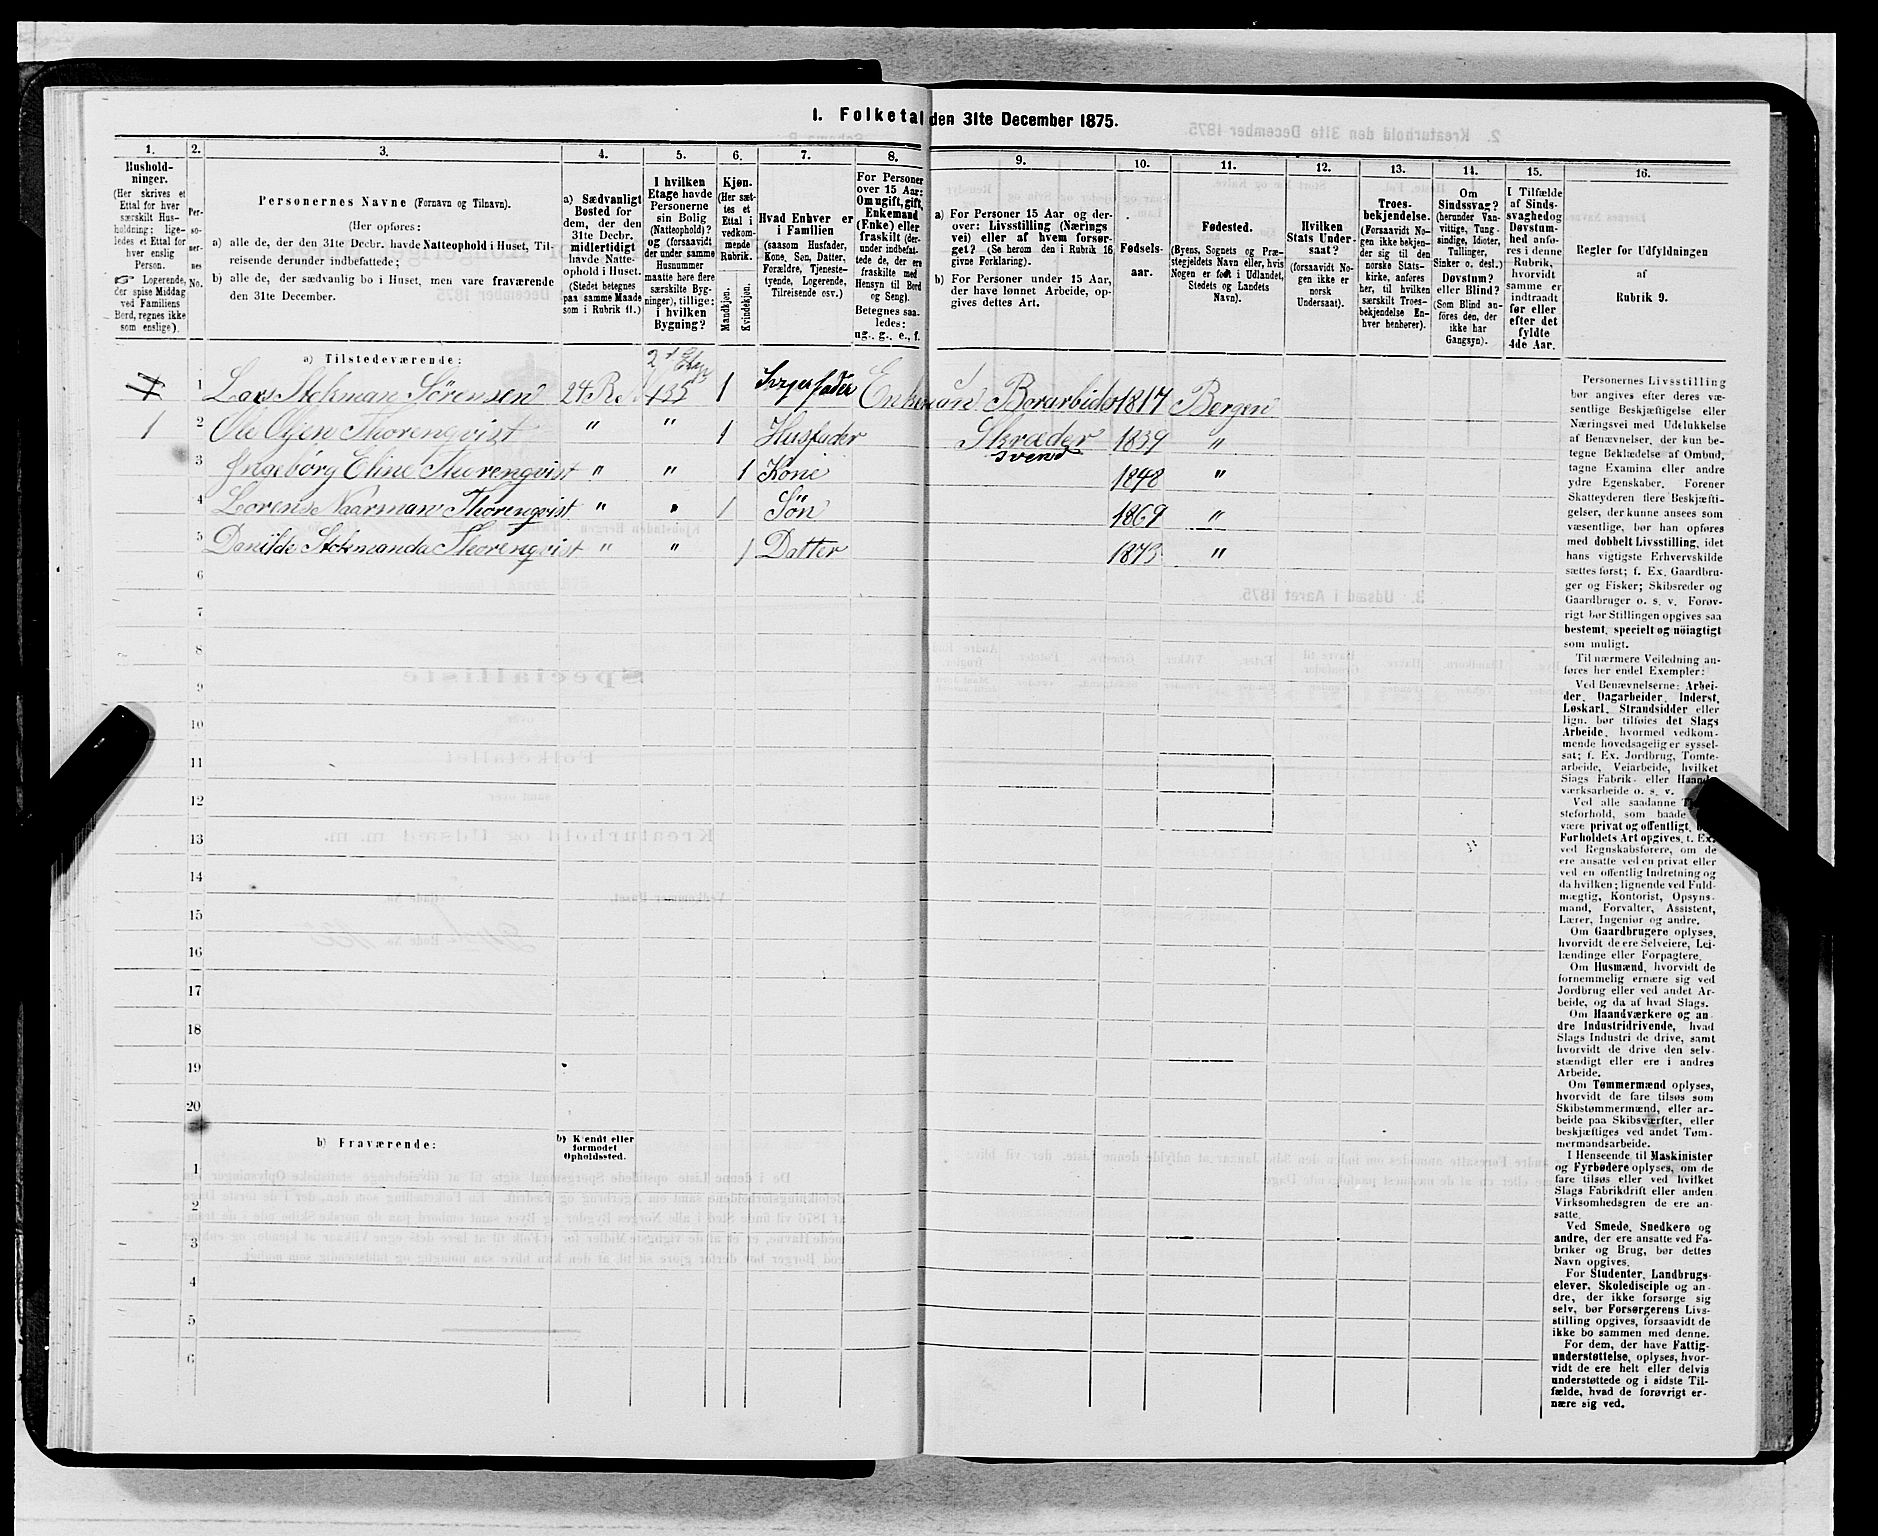 1. Folketal den 31te December 1875.
1.
Hushold-
ninger.
(Her skrives et
Ettal for hver
særskilt Hus-
holdning; lige-
ledes et Ettal for
hver enslig
Person.
Logerende,
der spise Middag
ved Familiens
Bord, regnes ikke
som enslige).
2.
Per-
so-
ner-
nes
No.
3.
Personernes Navne (Fornavn og Tilnavn).
(Her opføres:
a) alle de, der den 31te Decbr. havde Natteophold i Huset, Til-
reisende derunder indbefattede;
b) alle de, der sædvanlig bo i Huset, men vare fraværende
den 31te December.
4.
a) Sædvanligt
Bosted for
dem, der den
31te Decbr.
midlertidigt
havde Natte-
ophold i Huset.
(Stedet betegnes
paa samme Maade
som i Rubrik 11.)
5.
I hvilken
Etage havde
Personerne
sin Bolig
(Natteophold)?
og (forsaavidt
der under samme
Husnummer
maatte høre flere
særskilte Byg-
ninger), tillige:
i hvilken
Bygning?
6.
Kjøn.
(Her sæt-
tes et
Ettal i
vedkom-
mende
Rubrik.
Mandkjøn.
Kvindekjøn.
7.
Hvad Enhver er
i Familien
(saasom Husfader,
Kone, Søn, Datter,
Forældre, Tjeneste-
tyende, Logerende,
Tilreisende osv.)
8.
For Personer
over 15 Aar:
Om ugift, gift,
Enkemand
(Enke) eller
fraskilt (der-
under indbefat-
tede de, der ere
fraskilte med
Hensyn til Bord
og Seng).
Betegnes saa-
ledes:
ug., g., e., f.
9.
a) For Personer 15 Aar og der-
over: Livsstilling (Nærings
vei) eller af hvem forsør-
get? (Se herom den i Rubrik 16
givne Forklaring).
b) For Personer under 15 Aar,
der have lønnet Arbeide, op-
gives dettes Art.
10.
Fødsels-
aar.
11.
Fødested.
(Byens, Sognets og Præ-
stegjeldets Navn eller, hvis
Nogen er født i Udlandet,
Stedets og Landets
Navn).
12.
Hvilken
Stats Under-
saat?
(forsaavidt No-
gen ikke er
norsk
Undersaat).
13.
Troes-
bekjendelse.
(Forsaavidt No-
gen ikke bekjen-
der sig til den
norske Stats-
kirke, anføres
her, til hvilken
særskilt Troes-
bekjendelse En-
hver henhører).
14.
Om
Sindssvag?
(herunder Van-
vittige, Tung-
sindige, Idioter,
Tullinger,
Sinker o. desl.)
Døvstum?
eller Blind?
(Som Blind an-
føres den, der
ikke har
Gangsyn).
15.
I Tilfælde
af Sinds-
svaghed og
Døvstum-
hed anfø-
res i denne
Rubrik,
hvorvidt
samme er
indtraadt
før eller
efter det
fyldte
4de Aar.
16.
Regler for Udfyldningen
af
Rubrik 9.
a) Tilstedeværende:
1 1 Lars Stokman Sørensen 24 R. 1 Enkemand 1817 Bergen
1 2 Ole Olsen Thorenqvist " " 1 Husfader Skræder 1839 "
svend
3 Ingebørg Eline Thorenqvist " " 1 Kone 1848 "
4 Lorens Naarman Thorenqvist " " 1 Søn 1869 "
5 Danilde Stokmanda Thorenqvist " " 1 Datter 1873 "
6
7
8
9
10
11
12
13
14
15
16
17
18
19
20
b) Fraværende:
b) Kjendt eller
formodet
Opholdssted.
1
2
3
4
5
6
Personernes Livsstilling
bør angives efter deres væ-
sentlige Beskjæftigelse eller
Næringsvei med Udelukkelse
af Benævnelser, der kun be-
tegne Beklædelse af Ombud,
tagne Examina eller andre
ydre Egenskaber. Forener
Skatteyderen flere Beskjæfti-
gelser, der kunne ansees som
væsentlige, bør han opføres
med dobbelt Livsstilling, idet
hans vigtigste Erhvervskilde
sættes først; f. Ex. Gaardbru-
ger og Fisker; Skibsreder og
Gaardbruger o. s. v. Forøv-
rigt bør Stillingen opgives saa
bestemt, specielt og nöiagtigt
som muligt.
Til nærmere Veiledning an-
føres her endel Exempler:
Ved Benævnelserne: Arbei-
der, Dagarbeider, Inderst,
Løskarl, Strandsidder eller
lign. bør tilføies det Slags
Arbeide, hvormed vedkom-
mende hovedsagelig er syssel-
sat; f. Ex. Jordbrug, Tomte-
arbeide, Veiarbeide, hvilket
Slags Fabrik- eller Haand-
værksarbeide o. s. v.
Ved alle saadanne
steforhold, som baade
være privat og offentligt,
Forholdets Art opgives, f. Ex.
ved Regnskabsførere, om de
ere ansatte ved en privat eller
ved en offentlig Indretning og
da hvilken; lignende ved Fuld-
mægtig, Kontorist, Opsyns-
mand, Forvalter, Assistent,
Lærer, Ingeniør og andre.
Om Gaardbrugere oplyses,
hvorvidt de ere Selveiere, Lei-
lændinge eller Forpagtere.
Om Husmænd, hvorvidt de
fornemmelig ernære sig ved
Jordbrug eller ved andet Ar-
beide, og da af hvad Slags.
Om Haandværkere og an
dre Industridrivende, hvad
Slags Industri de drive, samt
hvorvidt de drive den selv-
stændigt eller ere i andres
Arbeide.
Om Tømmermænd oplyses,
hvorvidt de fare tilsøs som
Skibstømmermænd, eller ar-
beide paa Skibsværfter, eller
beskjæftiges ved andet Tøm-
mermandsarbeide.
I Henseende til Maskinister
og Fyrbødere oplyses, om de
fare tilsøs eller ved hvilket
Slags Fabrikdrift eller anden
Virksomhedsgren de ere an-
satte.
Ved Smede, Snedkere og
andre, der ere ansatte ved Fa-
briker og Brug, bør dettes
Navn opgives.
For Studenter, Landbrugs-
elever, Skoledisciple og an-
dre, der ikke forsørge sig
selv, bør Forsørgerens Livs-
stilling opgives, forsaavidt de
ikke bo sammen med denne.
For dem, der have Fattig-
understøttelse, oplyses, hvor-
vidt de ere helt eller delvis
understøttede og i sidste Til-
fælde, hvad de forøvrigt er-
nære sig ved.